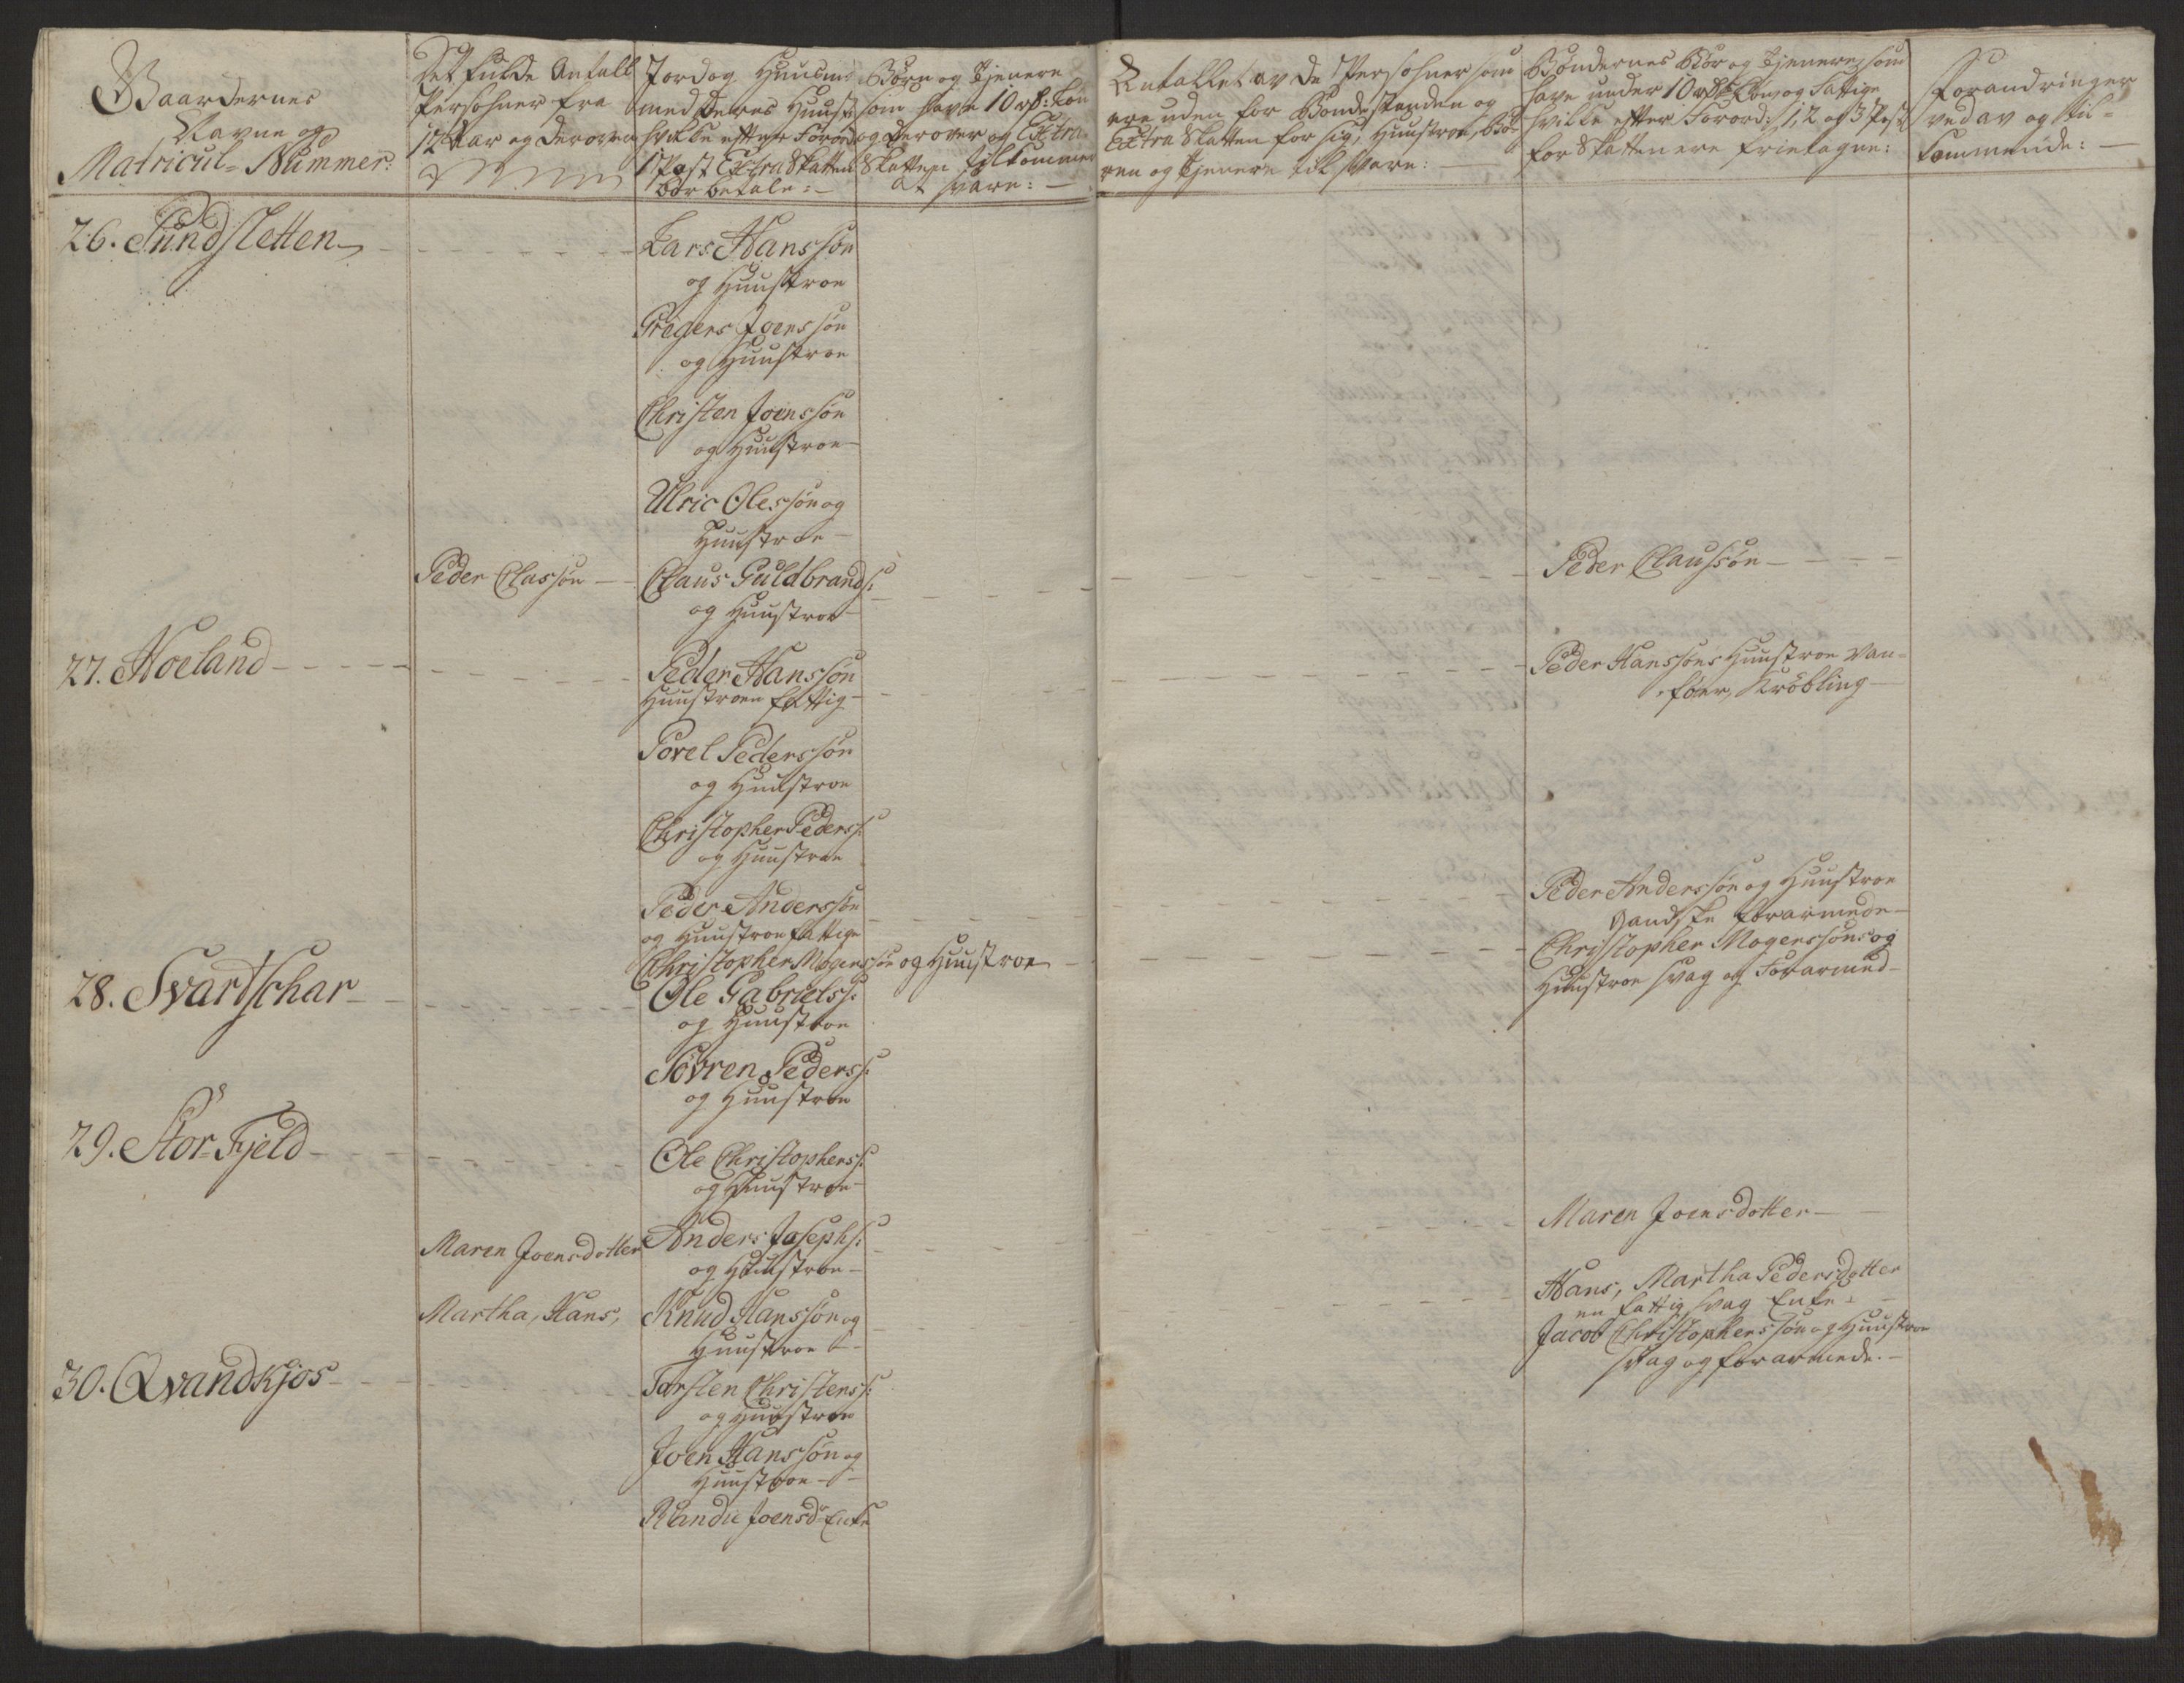 Gaardernes
Navne og
Matricul-Nummer:
Det fulde Antall
Persohner fra
12 Aar og derover
Jord og Huusmæ
med Deres Hustr
hvilke efter Forord
1 Post Extra Skatten
bør betale:
Børn og Tjenere
som have 10 rd: Løn
og derover og Extra
Skatten tilkommer
at svare:
Antallet av de Persohner som
ere uden for Bondestanden og
Extra Skatten for sig, Huustroe, Bør
ren og Tjenere til svare:
Bøndernes Bør og Tjenere som
have under 10 rd Løn og Fattige
hvilke efter Forord: 1, 2 og 3 Post
for Skatten ere frietagne:
Forandringer
ved av og til-
kommende:
26. Sundsletten
Lars Hanssøn
og Huustroe
Gregers Joenssøn
og Huustroe
Christen Joenssøn
og Huustroe
Ulric Olessøn og
Huustroe
Peder Classøn
Claus Guldbrands:
og Huustroe
Peder Claussøn
27. Hoeland
Peder Hanssøn
Huustroen fattig
Peder Hanssøns Huustroe Van-
før, Krøbling
Povel Pederssøn
og Huustroe
Christopher Peders:
og Huustroe
Peder Anderssøn
og Huustroe fattige
Peder Anderssøn og Huustroe
gandske forarmede
Christopher Mogenssøn og Huustroe
Christopher Mogenssøns og
Huustroe svag og Forarmed
28. Svartschar
Ole Gabriels:
og Huustroe
Søvren Peders:
og Huustroe
29. Stor-Fjeld
Ole Christophers:
og Huustroe
Maren Joensdotter
Anders Josephs:
og Huustroe
Maren Joensdotter
Martha, Hans,
Knud Hanssøn og
Huustroe
Hans, Martha Pedersdotter
en fattig svag Enke
Jacob Christopherssøn og Huustroe
svag og forarmede.
30. Qvandkjos
Torsten Christens:
og Huustroe
Joen Hanssøn og
Huustroe
Randii Joensdr Enke